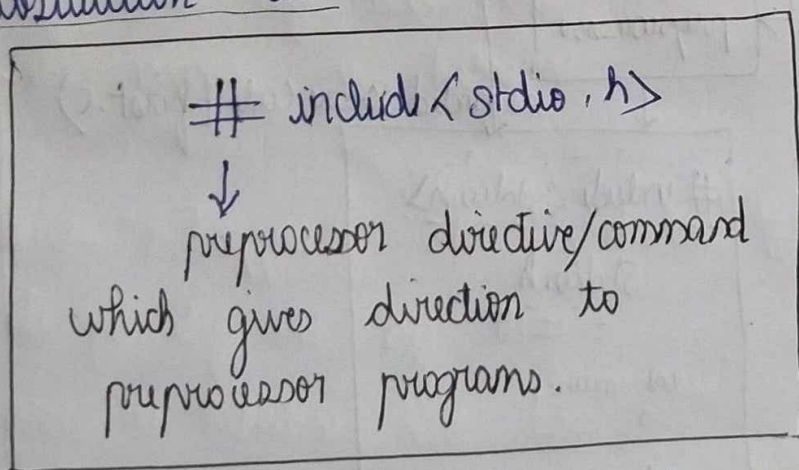 # include < stdio.h>
↓
preprocessor directive/command
which gives direction to
preprocessor programs.